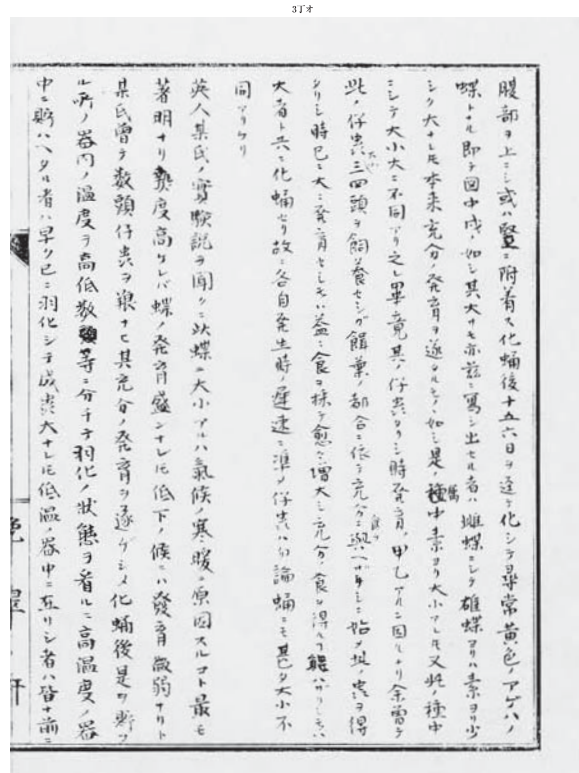 3丁オ
腹部ヲ上ニシ或ハ豎ニ附着ス化蛹後十五六日ヲ逕テ化シテ尋常黄色ノアゲハノ
蝶トナル即チ図中戊ノ如シ其大サモ亦玆ニ寫シ出セル者ハ雌蝶ニシテ雄蝶ヨリハ素ヨリ少
シク大ナレ𪜈本来充分ノ発育ヲ遂タル者ノ如シ是ノ種中素ヨリ大小アレ𪜈又此ノ種中
ニシテ大小大ニ不同アリ之レ畢竟其ノ仔虫タリシ時発育ノ甲乙アルニ因ルナリ余曽テ
此ノ仔虫三四頭ヲ飼養セシガ餌葉ノ都合ニ依テ充分ニ與ヘザリキニ始メ此ノ虫ヲ得
タリシ時已ニ大ニ発育セシモノハ益ニ食ヲ採テ愈々増大シ充分ノ食ヲ得ルヿ能ハザリシモノハ
大者ト共ニ化蛹セリ故ニ各自発生時ノ遅速ニ準ノ仔虫ハ勿論蛹ニモ甚タ大小不
同アリケリ
英人某氏ノ實験説ヲ聞クニ此蝶ニ大小アルハ氣候ノ寒暖ニ原因スルコト最モ
著明ナリ熱度高ケレバ蝶ノ発育盛ンナレ𪜈低下ノ候ニハ發育微弱ナリト
某氏曽テ数頭仔虫ヲ養ナヒ其充分ノ発育ヲ遂ゲシメ化蛹後是ヲ野ツ
ル所ノ器内ノ温度ヲ高低数等ニ分チテ羽化ノ状態ヲ看ルニ高温度ノ器
中ニ貯ハヘタル者ハ早ク已ニ羽化シテ成虫大ナレ𪜈低温ノ器中ニ在リシ者ハ皆ナ前ニ